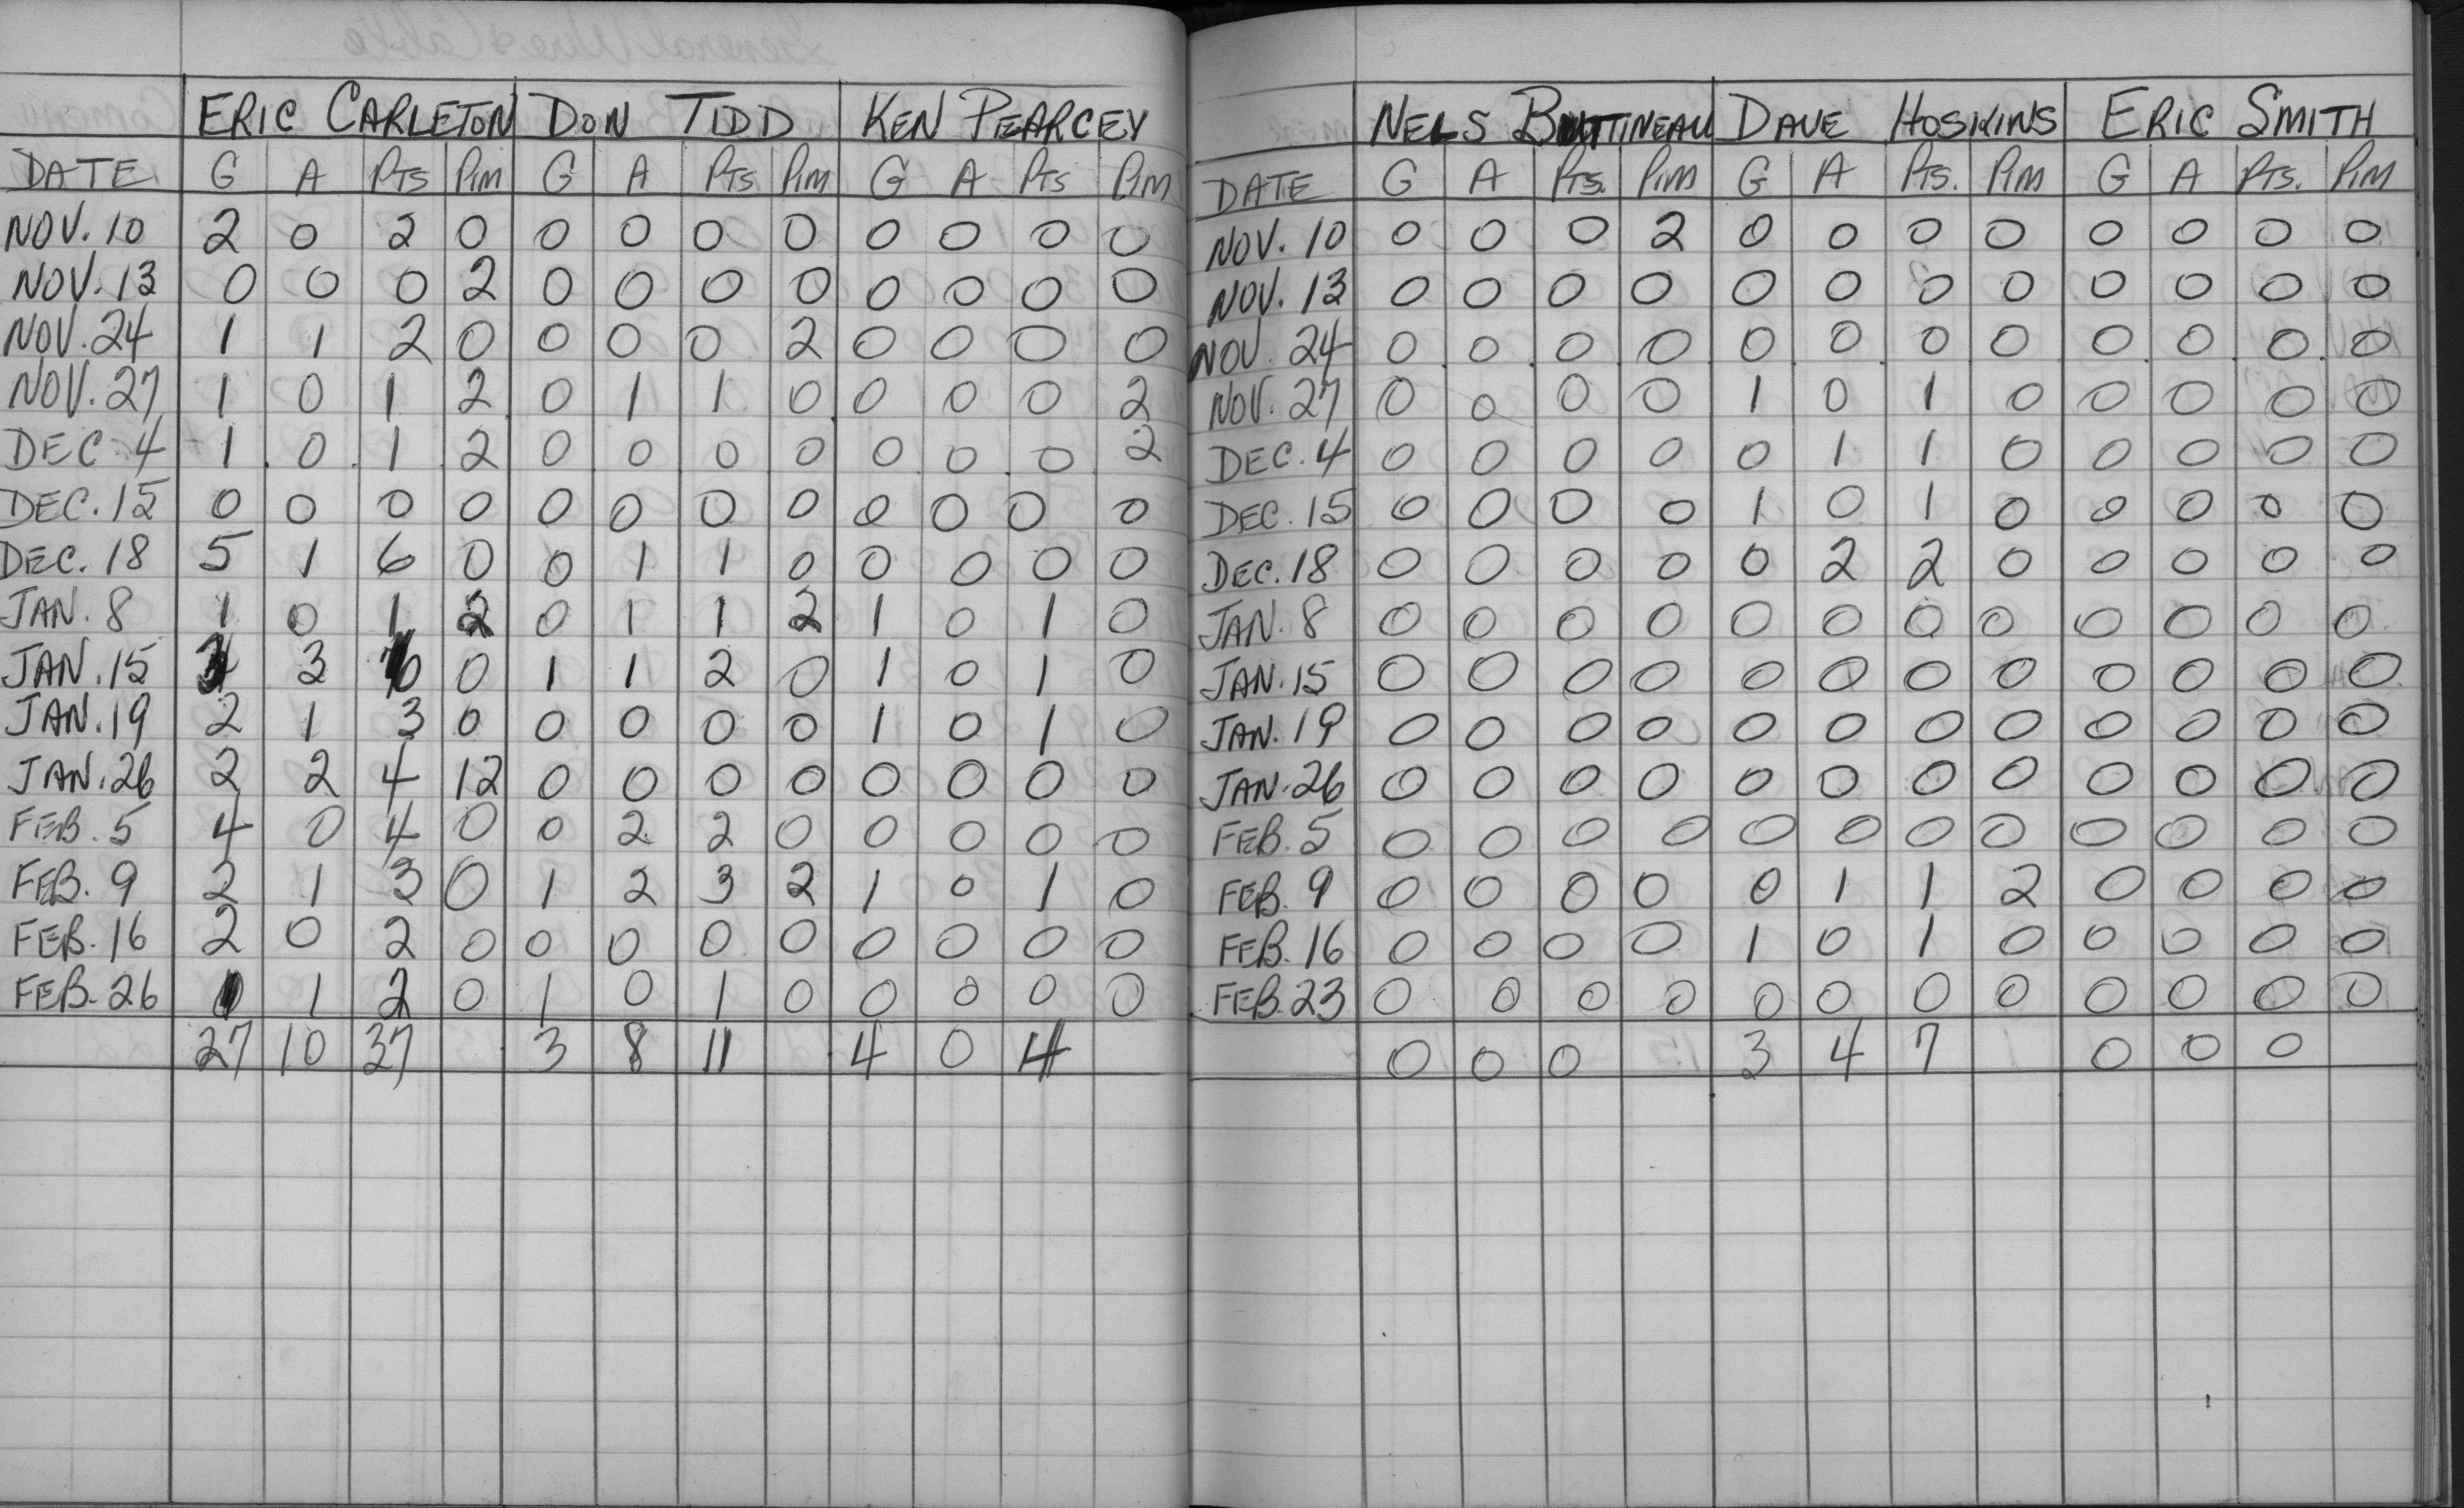 ERIC CARLETON DON TIDD KEN PEARCEY
DATE G A PTS PIM G A PTS PIM G A PTS PIM
NOV. 10 2 0 2 0 0 0 0 0 0 0 0 0
NOV. 13 0 0 0 2 0 0 0 0 0 0 0 0
NOV. 24 1 1 2 0 0 0 0 2 0 0 0 0
NOV. 27 1 0 1 2 0 1 1 0 0 0 0 2
DEC. 4 1 0 1 2 0 0 0 0 0 0 0 2
DEC. 15 0 0 0 0 0 0 0 0 0 0 0 0
DEC. 18 5 1 6 0 0 1 1 0 0 0 0 0
JAN. 8 1 0 1 2 0 1 1 2 1 0 1 0
JAN. 15 3 0 1 1 2 0 1 0 1 0
JAN. 19 2 1 3 0 0 0 0 0 1 0 1 0
JAN. 26 2 2 4 12 0 0 0 0 0 0 0 0
FEB. 5 4 0 4 0 0 2 2 0 0 0 0 0
FEB. 9 2 1 3 0 1 2 3 2 1 0 1 0
FEB. 16 2 0 2 0 0 0 0 0 0 0 0 0
FEB. 26 1 1 2 0 1 0 1 0 0 0 0 0
27 10 37 3 8 11 4 0 4
NELS BUTTINEAU DAVE HOSKINS ERIC SMITH
DATE G A PTS. PIM G A PTS. PIM G A PTS. PIM
NOV. 10 0 0 0 2 0 0 0 0 0 0 0 0
NOV. 13 0 0 0 0 0 0 0 0 0 0 0 0
NOV. 24 0 0 0 0 0 0 0 0 0 0 0 0
NOV. 27 0 0 0 0 1 0 1 0 0 0 0 0
DEC. 4 0 0 0 0 0 1 1 0 0 0 0 0
DEC. 15 0 0 0 0 1 0 1 0 0 0 0 0
DEC. 18 0 0 0 0 0 2 2 0 0 0 0 0
JAN. 8 0 0 0 0 0 0 0 0 0 0 0 0
JAN. 15 0 0 0 0 0 0 0 0 0 0 0 0
JAN. 19 0 0 0 0 0 0 0 0 0 0 0 0
JAN. 26 0 0 0 0 0 0 0 0 0 0 0 0
FEB. 5 0 0 0 0 0 0 0 0 0 0 0 0
FEB. 9 0 0 0 0 0 1 1 2 0 0 0 0
FEB. 16 0 0 0 0 1 0 1 0 0 0 0 0
FEB. 23 0 0 0 0 0 0 0 0 0 0 0 0
0 0 0 3 4 7 0 0 0